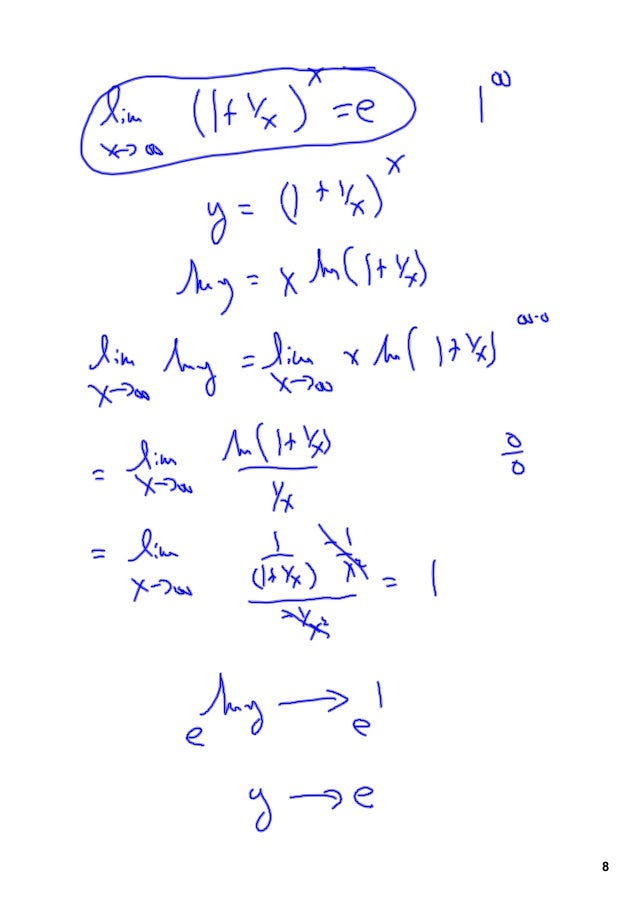 lim x→∞ (1+1/x)^x = e 1^∞
y = (1+1/x)^x
ln y = x ln(1+1/x)
lim x→∞ ln y = lim x→∞ x ln(1+1/x) ∞·0
= lim x→∞ ln(1+1/x) / 1/x 0/0
= lim x→∞ 1/(1+1/x) -1/x² / -1/x² = 1
e^ln y → e^1
y → e
8